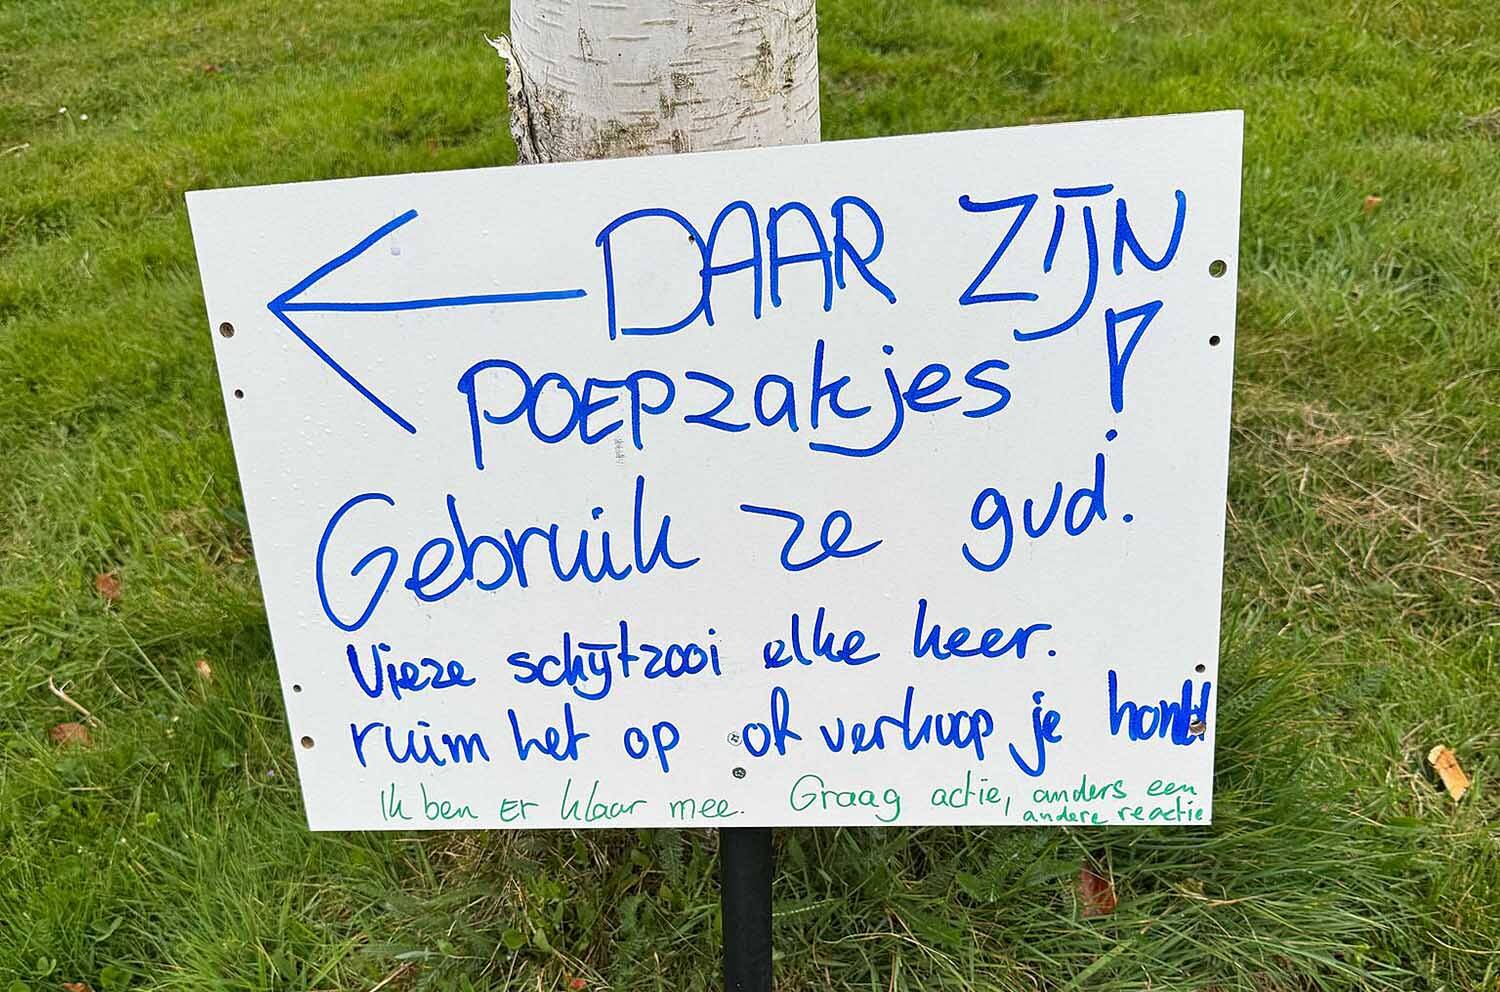 DAAR ZIJN
POEPzakjes!
Gebruik ze gud.
Vieze schijtzooi elke keer.
ruim het op of verkoop je hond!
Ik ben Er klaar mee. Graag actie, anders een
andere reactie